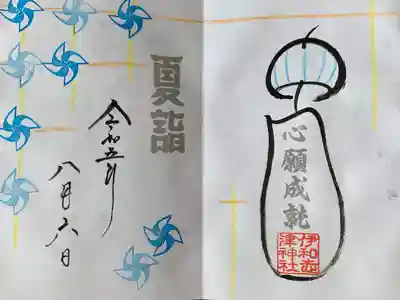 夏詣
令和五年
八月六日
心願成就
伊和志
津神社